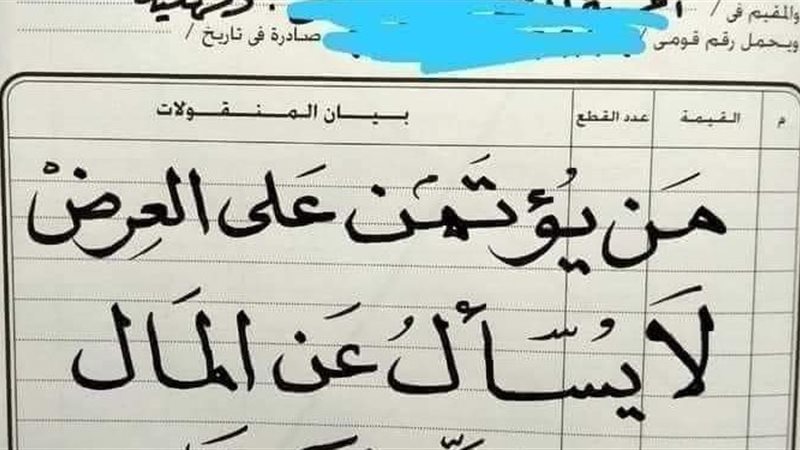 والمقيم فى /
ويحمل رقم قومى / صادرة فى تاريخ /
م القيمة عدد القطع بيان المنقولات
مَن يُؤتَمَن عَلى العِرضْ
لَا يُسّأَلُ عَن المَال